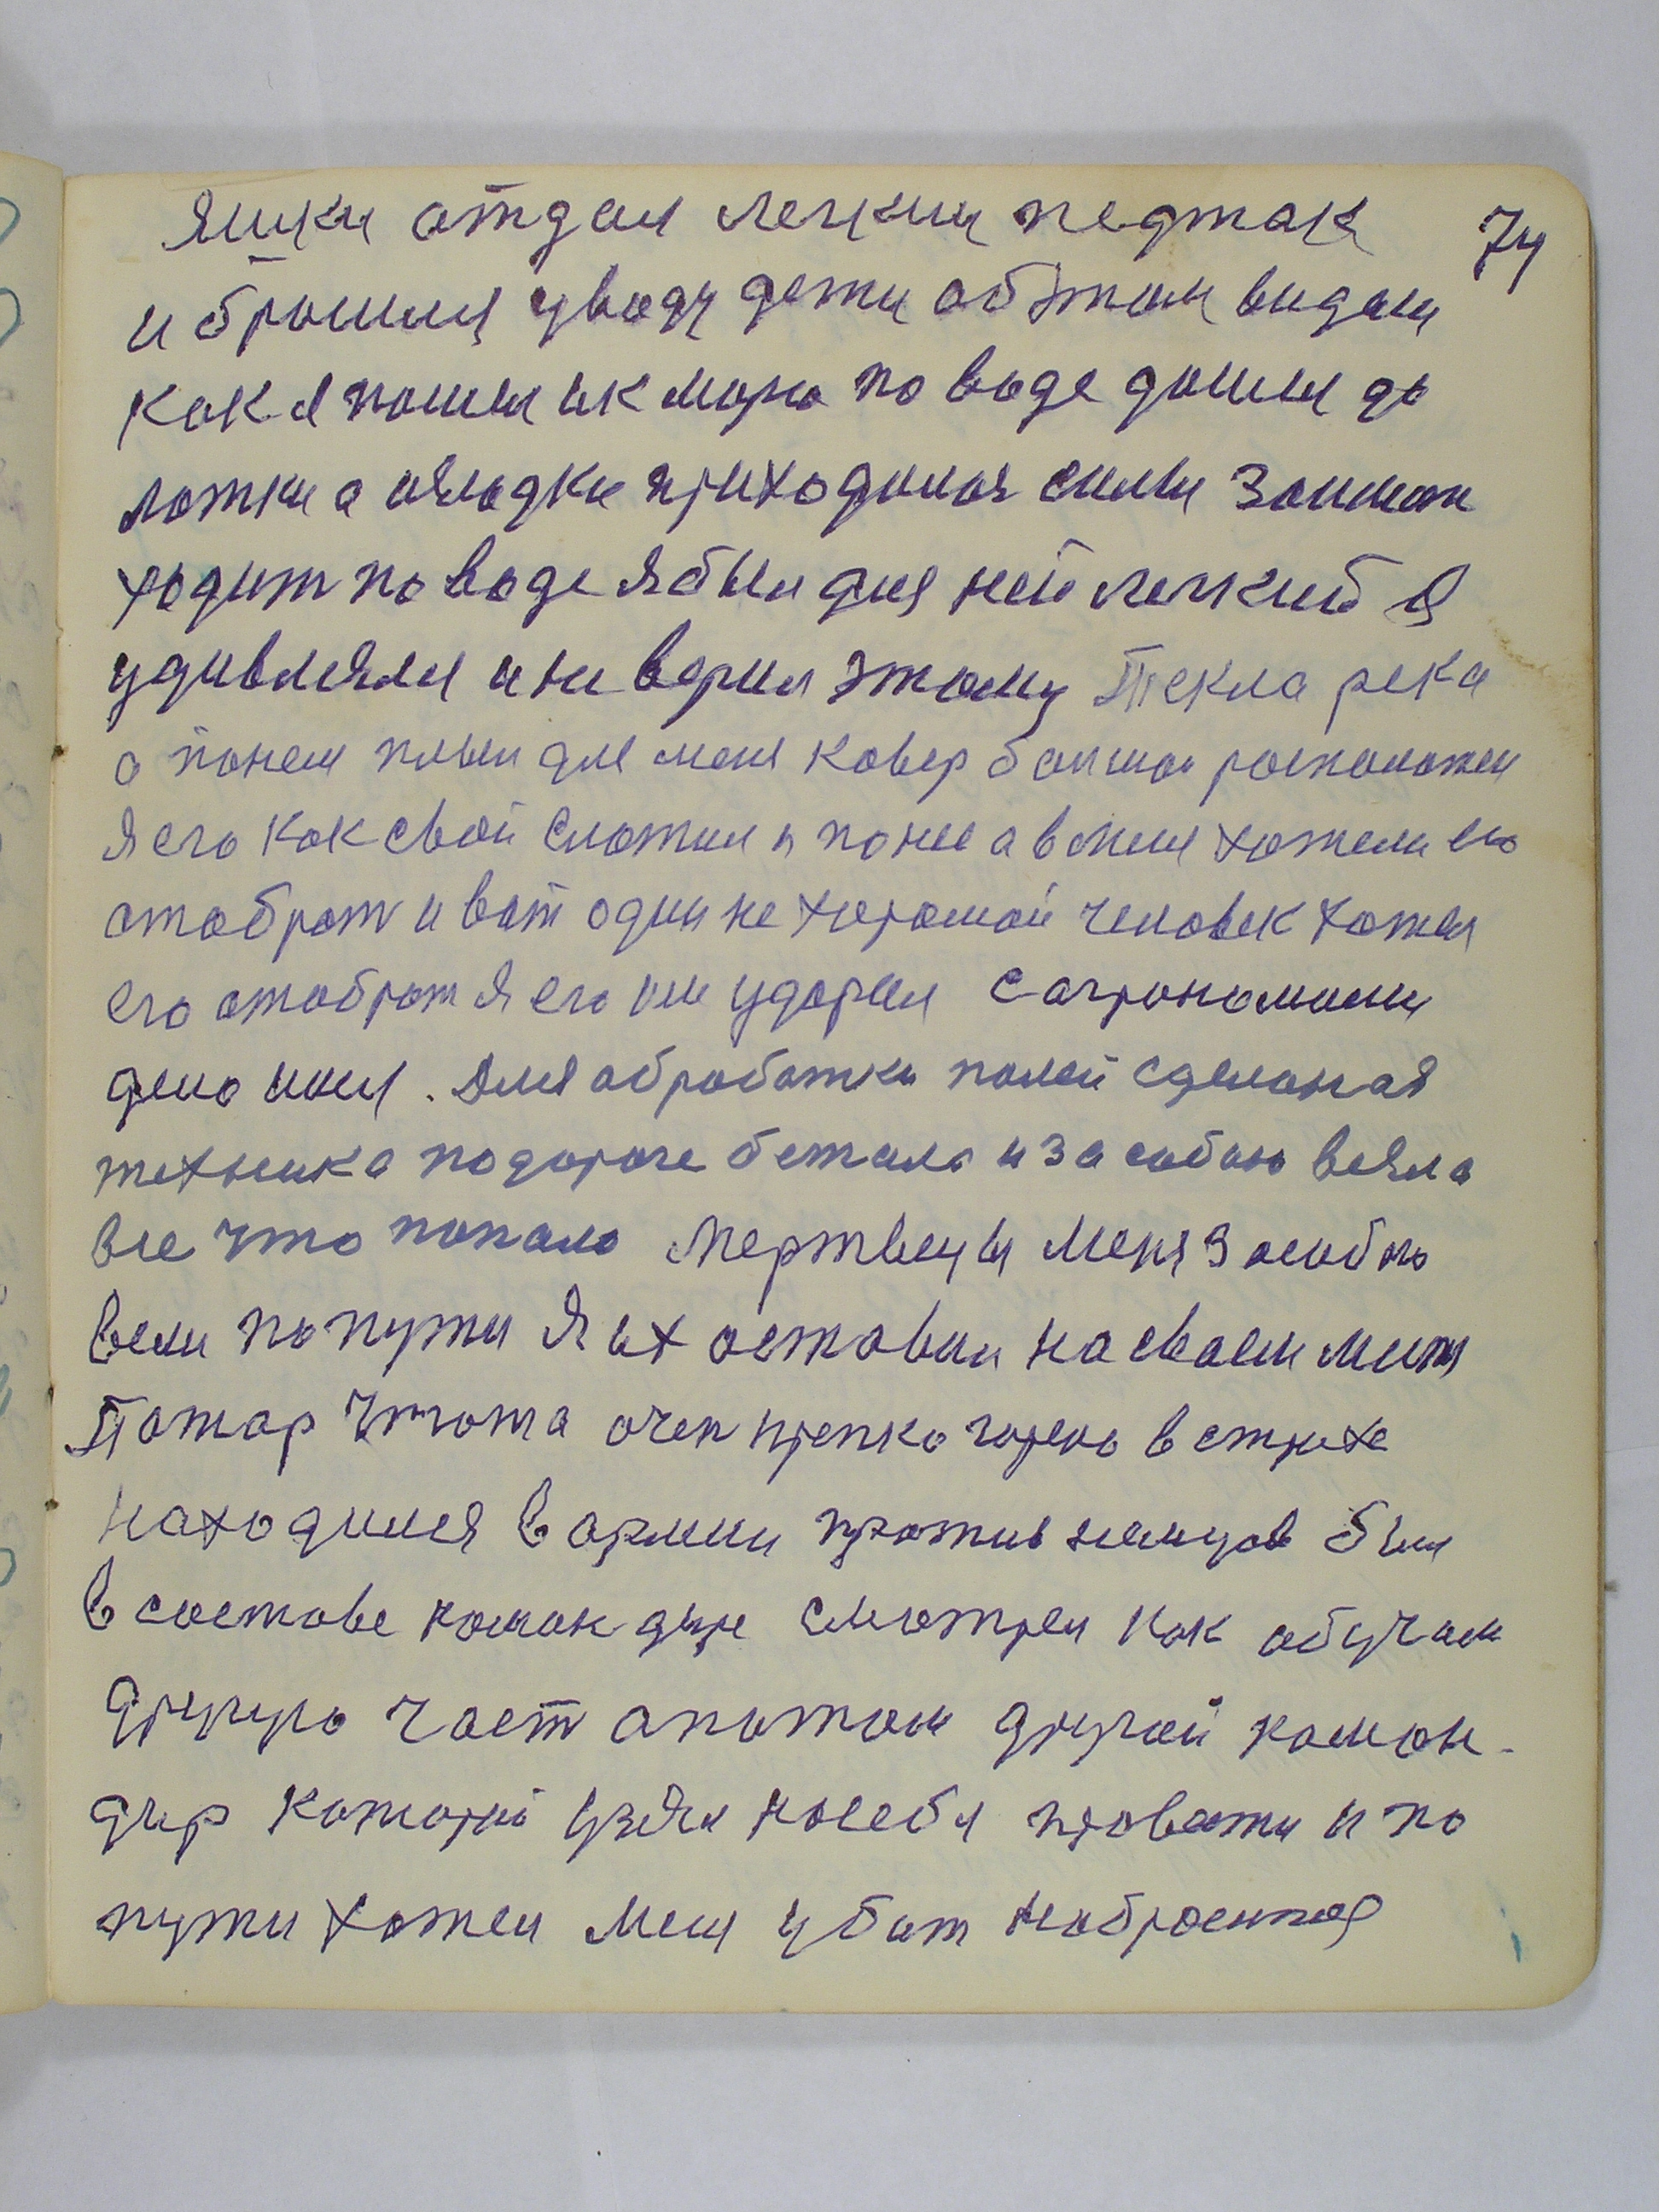 Яшки отдал легкии педжак 74
и бросился уводу дети об этом видали
как я пошел ик морю по воде дошел до
лотки а излодки приходилося силы занимат
ходит по воде я был для ней легкий Я
удивлялся и не верил этому Текла река
а понем плыл для меня ковер большой расположен
я его как свой сложил и понес а в меня хотели его
отобрат и вот один не хорошой человек хотел
его отобрат я его им ударил С агрономами
дело имел. Для обработки полей сделаная
техника подороге бежала и за собою везла
все что попало Мертвецы меня Засобою
вели попути я их оставил насваем мист
Пожар Чтота очен крепко горело в стрихе
Находился в армии против немцов был
в составе командире смотрел как обучали
другую част а потом другой коман-
дир который узял насебя провести и по
пути хотел меня убит